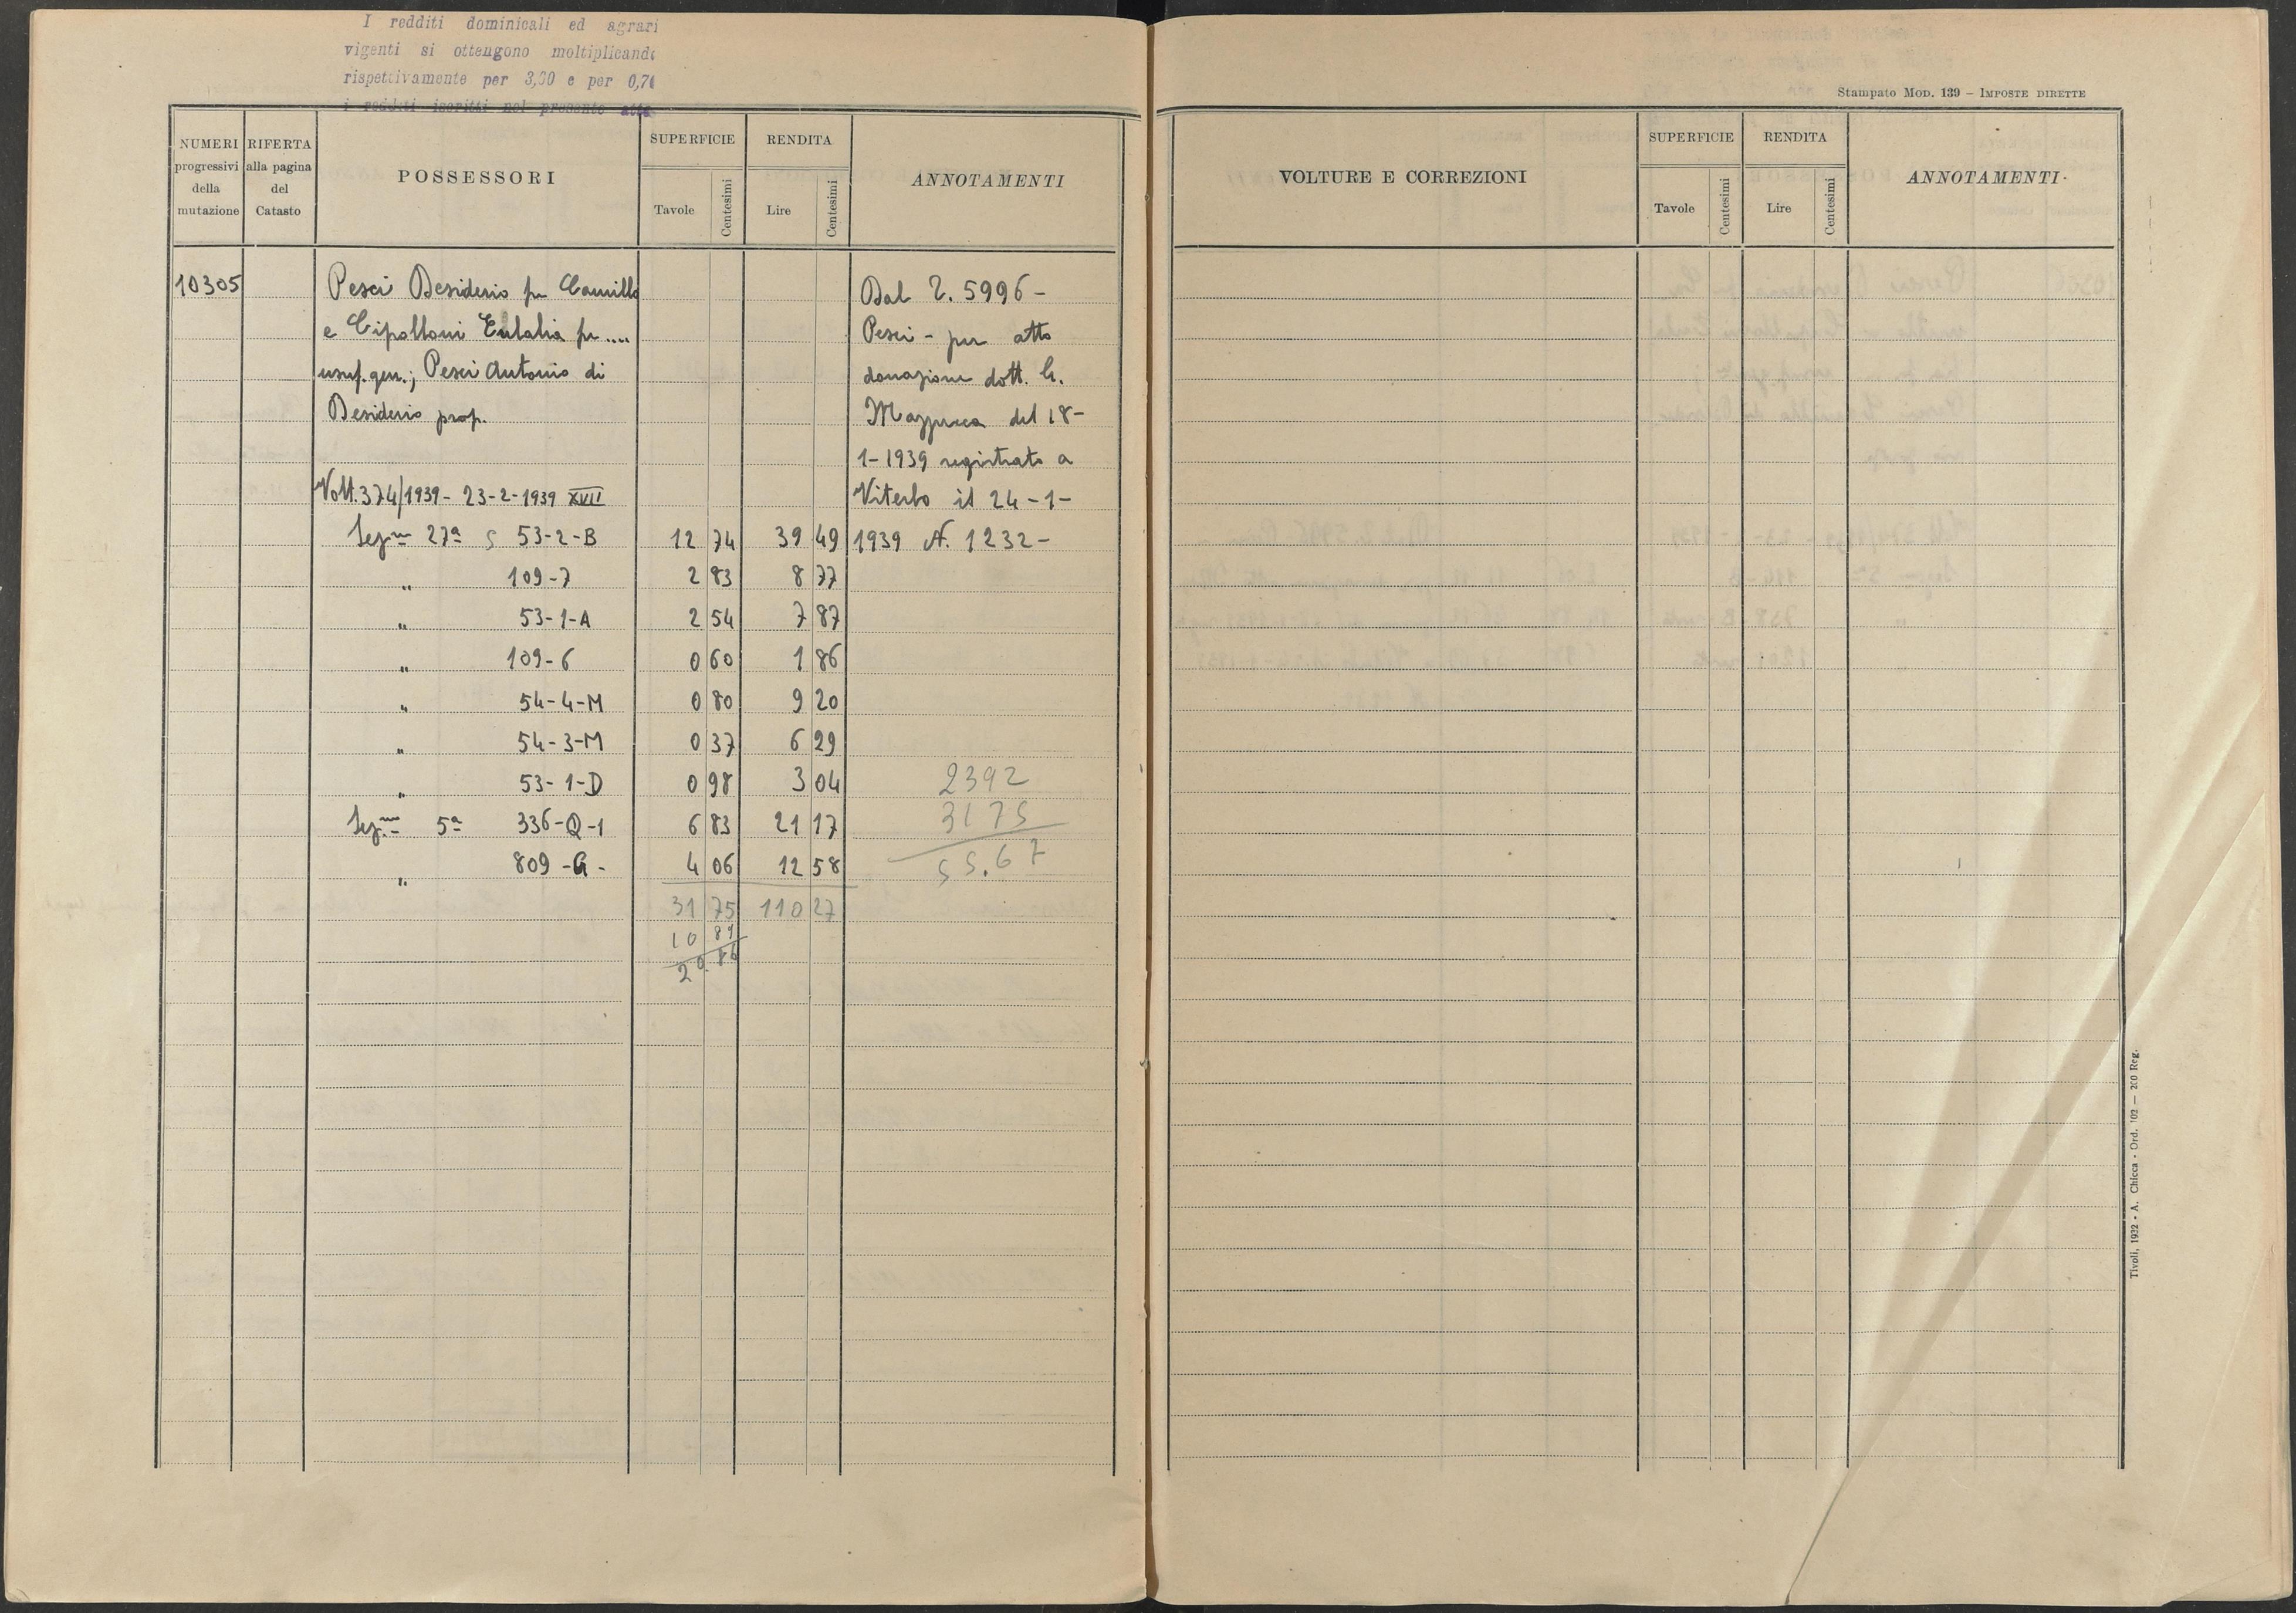 I redditi dominicali ed agrari
vigenti si ottengono moltiplicando
rispettivamente per 3,30 e per 0,70
i redditi iscritti nel presente atto
NUMERI progressivi della mutazione
RIFERTA alla pagina del Catasto
POSSESSORI
SUPERFICIE
Tavole
Centesimi
RENDITA
Lire
Centesimi
ANNOTAMENTI
10305
Pesci Desiderio fu Camillo
e Cipolloni Eulalia fu ....
usuf. gen.; Pesci Antonio di
Desiderio prop.
Volt. 374/1939 - 23-2-1939 XVII
Sezne 27a S 53-2-B 12 74 39 49
" 109-7 2 83 8 77
" 53-1-A 2 54 7 87
" 109-6 0 60 1 86
" 54-4-M 0 80 9 20
" 54-3-M 0 37 6 29
" 53-1-D 0 98 3 04
Sezne 5a 336-Q-1 6 83 21 17
" 809-G- 4 06 12 58
31 75 110 27
10 89
20 86
Dal 2. 5996 -
Pesci - per atto
donazione dott. G.
Mazzucca del 18-
1-1939 registrato a
Viterbo il 24-1-
1939 N. 1232 -
2392
3175
55.67
Stampato MOD. 139 - IMPOSTE DIRETTE
VOLTURE E CORREZIONI
SUPERFICIE
Tavole
Centesimi
RENDITA
Lire
Centesimi
ANNOTAMENTI
Tivoli, 1932 - A. Chicca - Ord. 102 — 200 Reg.